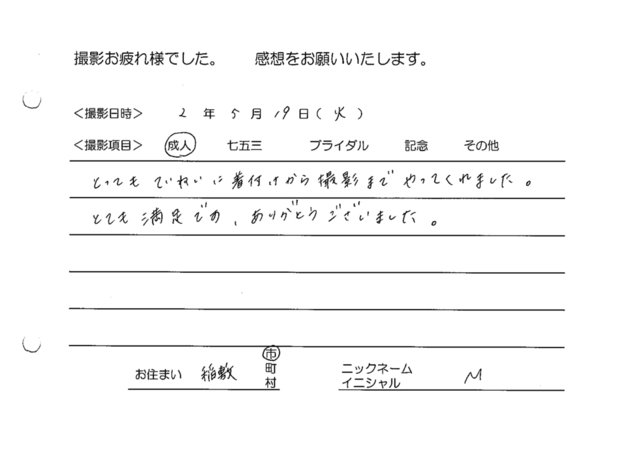 撮影お疲れ様でした。 感想をお願いいたします。
＜撮影日時＞ 2 年 5 月 19 日（火）
＜撮影項目＞ 成人 七五三 ブライダル 記念 その他
とってもていねいに着付けから撮影までやってくれました。
とても満足です、ありがとうございました。
お住まい 稲敷 市 町 村 ニックネーム イニシャル M